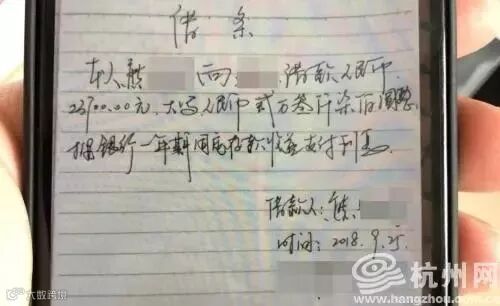 借条
本人熊 向 借款人民币
23700.00元，大写人民币贰万叁仟柒佰圆整
按银行一年期 支付利息
借款人：熊
时间：2018.9.25
大数跨境
杭州网
www.hangzhou.com.cn